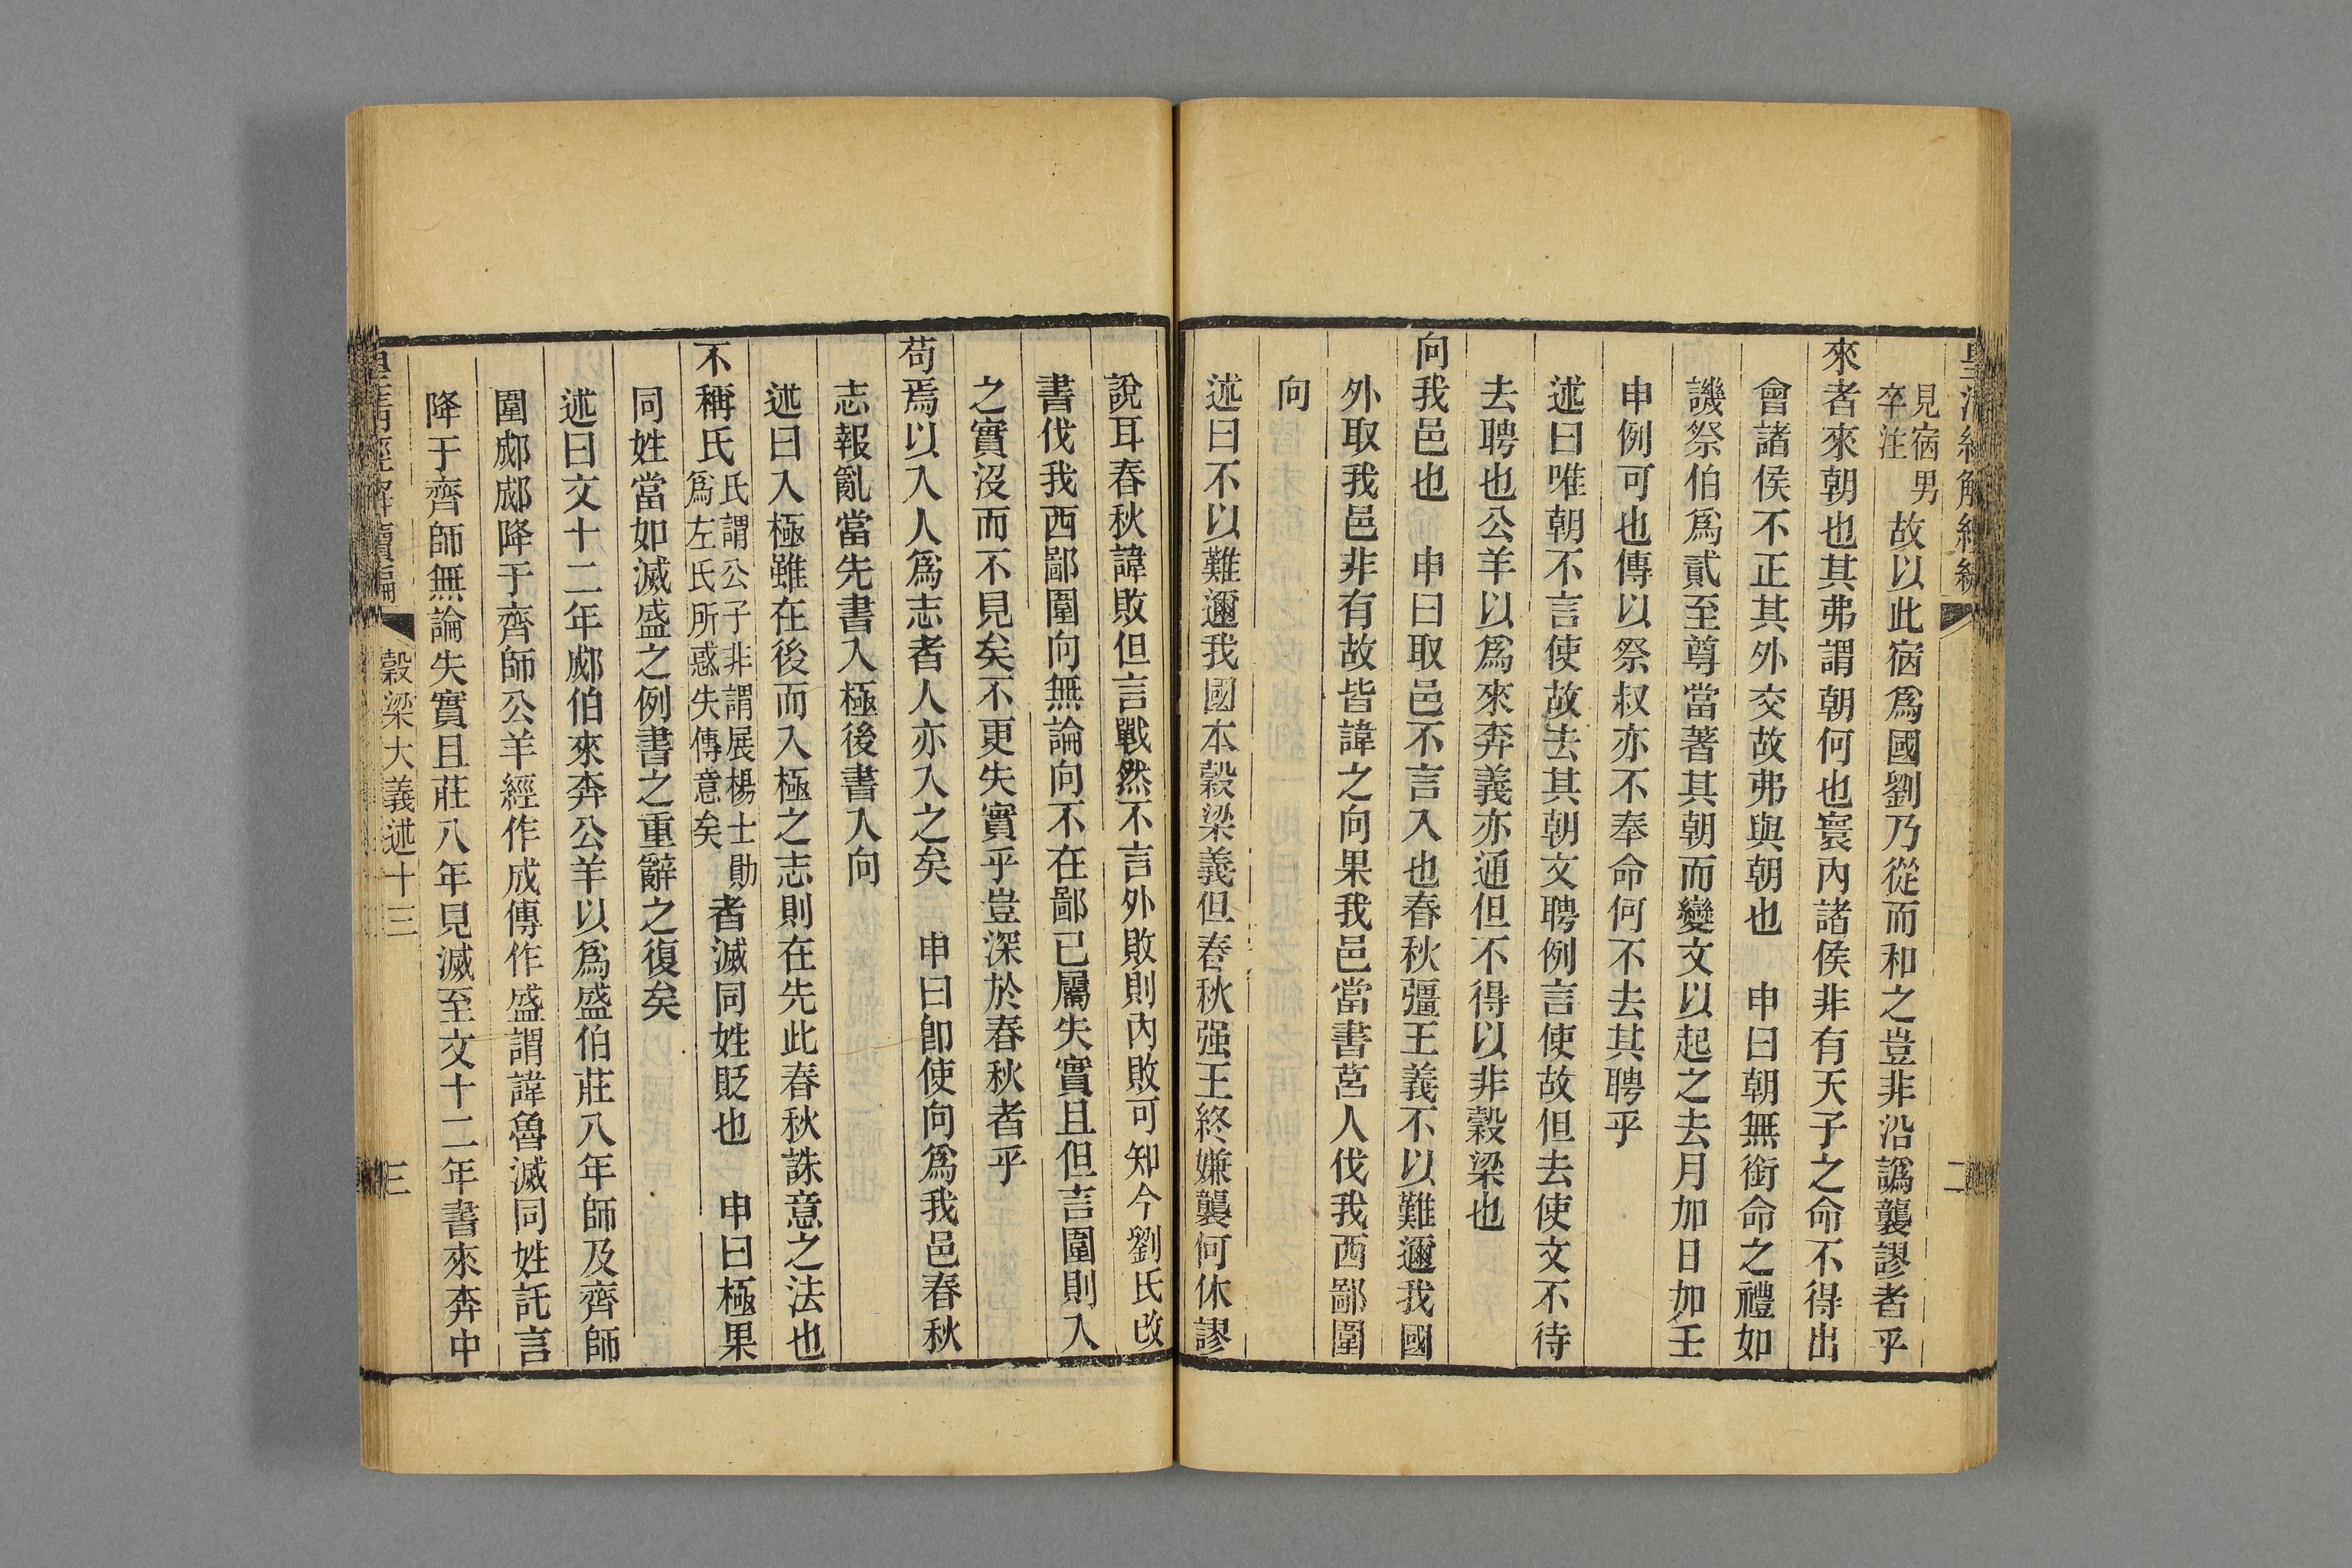 見宿男卒注故以此宿爲國劉乃從而和之豈非沿譌襲謬者乎
來者來朝也其弗謂朝何也寰內諸侯非有天子之命不得出
會諸侯不正其外交故弗與朝也　申曰朝無銜命之禮如
譏祭伯爲貳至尊當著其朝而變文以起之去月加日如壬
申例可也傳以祭叔亦不奉命何不去其聘乎
述曰唯朝不言使故去其朝文聘例言使故但去使文不待
去聘也公羊以爲來奔義亦通但不得以非穀梁也
向我邑也　申曰取邑不言入也春秋彊王義不以難邇我國
外取我邑非有故皆諱之向果我邑當書莒人伐我西鄙圍
向
述曰不以難邇我國本穀梁義但春秋强王終嫌襲何休謬
二
說耳春秋諱敗但言戰然不言外敗則內敗可知今劉氏改
書伐我西鄙圍向無論向不在鄙已屬失實且但言圍則入
之實沒而不見矣不更失實乎豈深於春秋者乎
苟焉以入人爲志者人亦入之矣　申曰卽使向爲我邑春秋
志報亂當先書入極後書入向
述曰入極雖在後而入極之志則在先此春秋誅意之法也
不稱氏氏謂公子非謂展楊士勛爲左氏所惑失傳意矣者滅同姓貶也　申曰極果
同姓當如滅盛之例書之重辭之復矣
述曰文十二年郕伯來奔公羊以爲盛伯莊八年師及齊師
圍郕郕降于齊師公羊經作成傳作盛謂諱魯滅同姓託言
降于齊師無論失實且莊八年見滅至文十二年書來奔中
皇淸經解續編　穀梁大義述十三　三